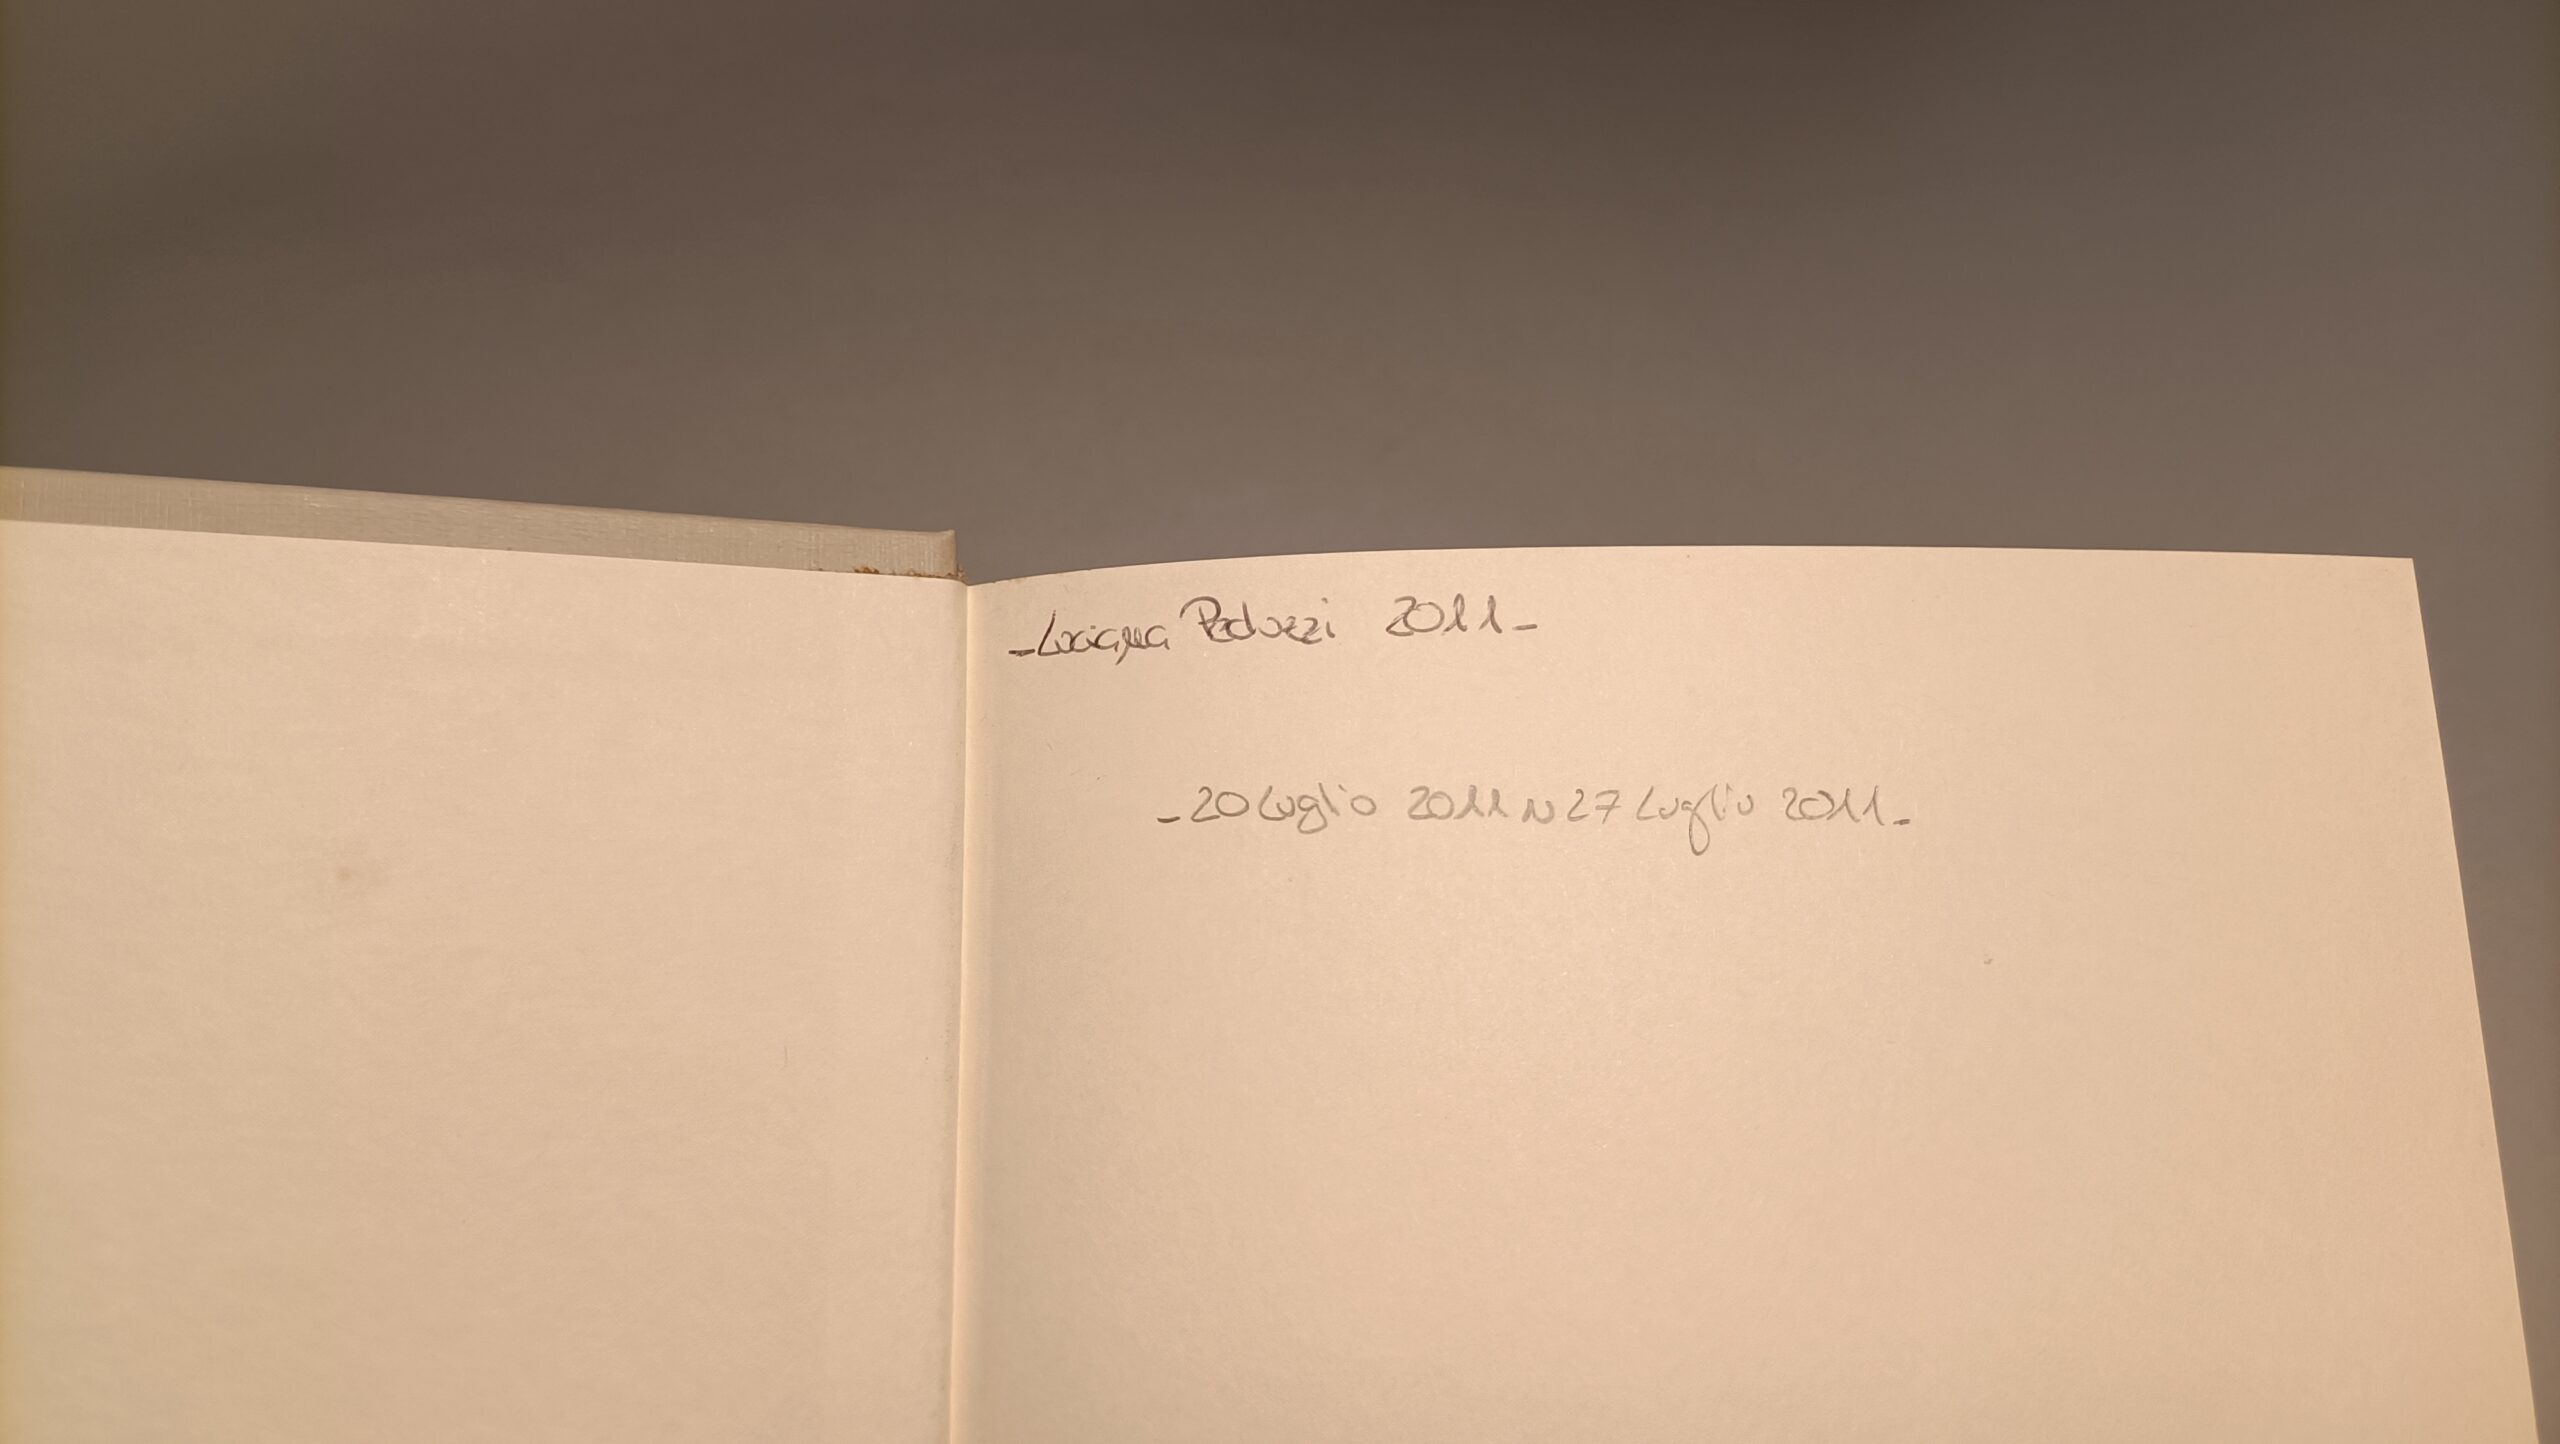 - Luciana Peduzzi 2011 -
- 20 Luglio 2011 ~ 27 Luglio 2011 -